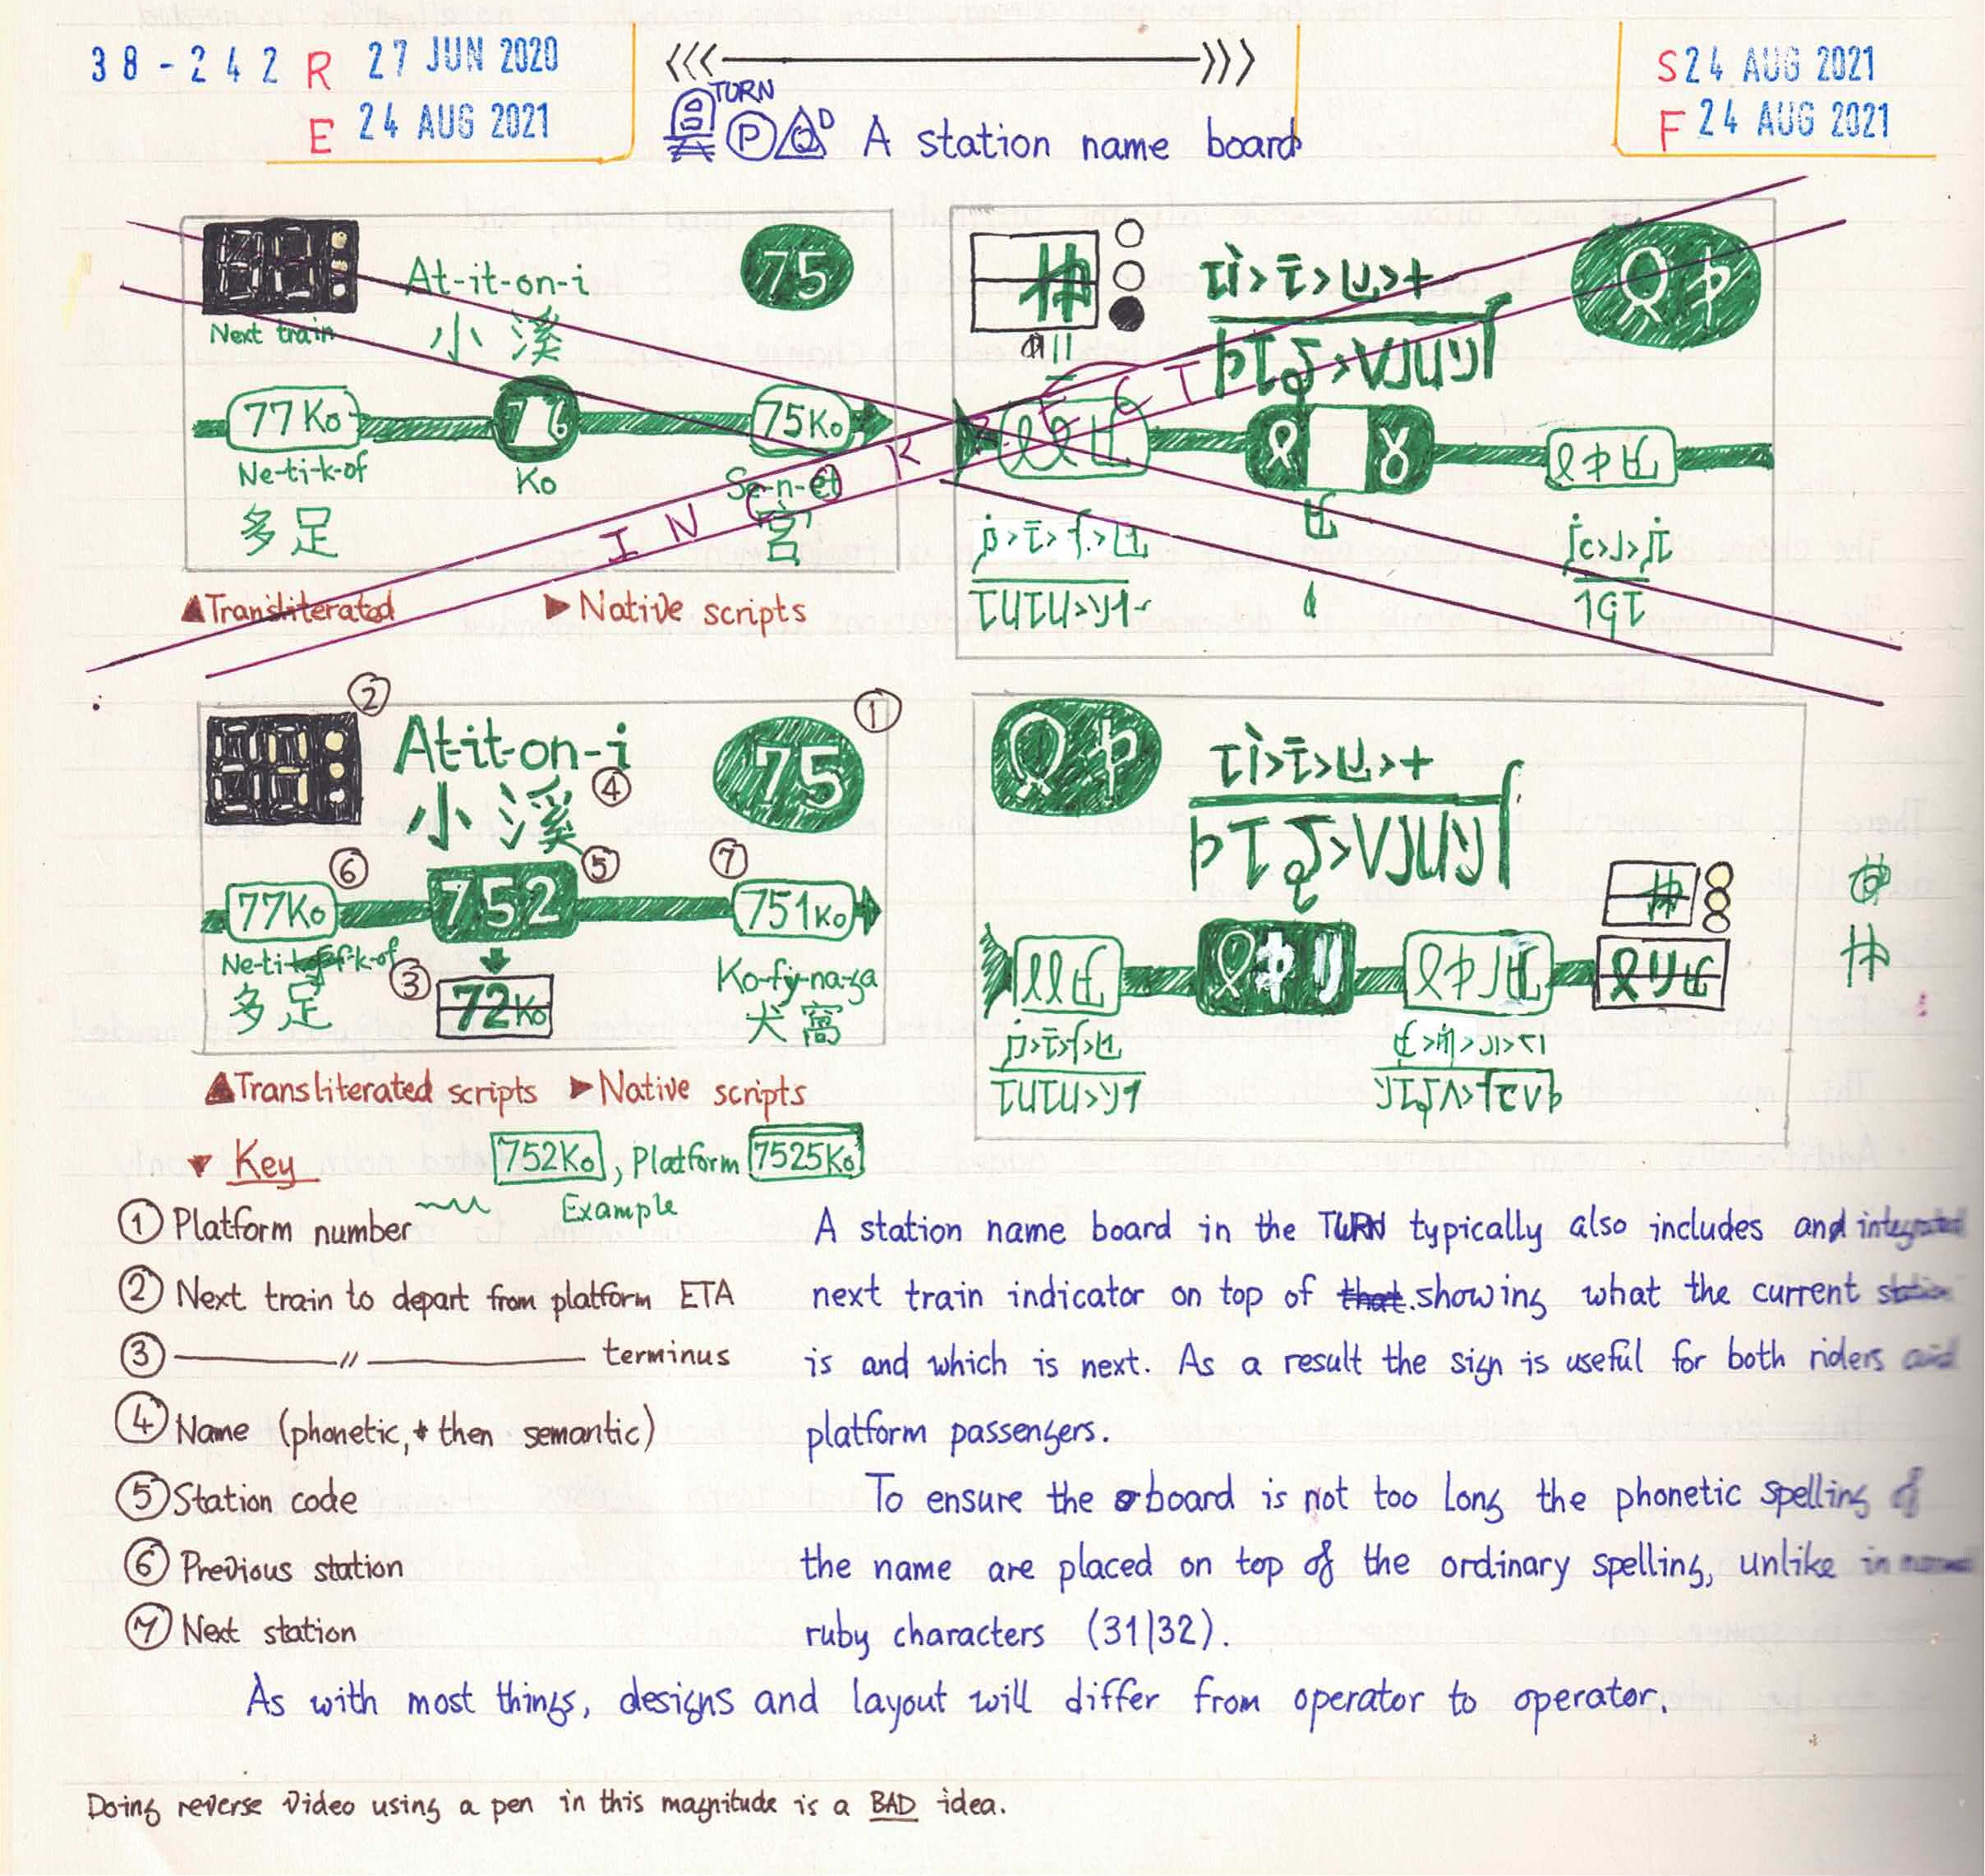 38-242 R 27 JUN 2020
E 24 AUG 2021
TURN
P Q D A station name board
S 24 AUG 2021
F 24 AUG 2021
Next train
At-it-on-i
小溪
75
77Ko 76 75Ko
Ne-ti-k-of Ko Se-n-et
多足 宮
INCORRECT
▲Transliterated ▶Native scripts
② ①
At-it-on-i
小溪 ④
75
⑥ ⑤ ⑦
77Ko 752 751Ko
Ne-ti-k-of Ko-fy-na-za
多足 ③ 72Ko 犬窩
▲Transliterated scripts ▶Native scripts
▼Key 752Ko, Platform 7525Ko
Example
① Platform number
② Next train to depart from platform ETA
③ —〃— terminus
④ Name (phonetic, then semantic)
⑤ Station code
⑥ Previous station
⑦ Next station
A station name board in the TURN typically also includes and integrated
next train indicator on top of that showing what the current station
is and which is next. As a result the sign is useful for both riders and
platform passengers.
To ensure the board is not too long the phonetic spelling of
the name are placed on top of the ordinary spelling, unlike in normal
ruby characters (31|32).
As with most things, designs and layout will differ from operator to operator.
Doing reverse video using a pen in this magnitude is a BAD idea.